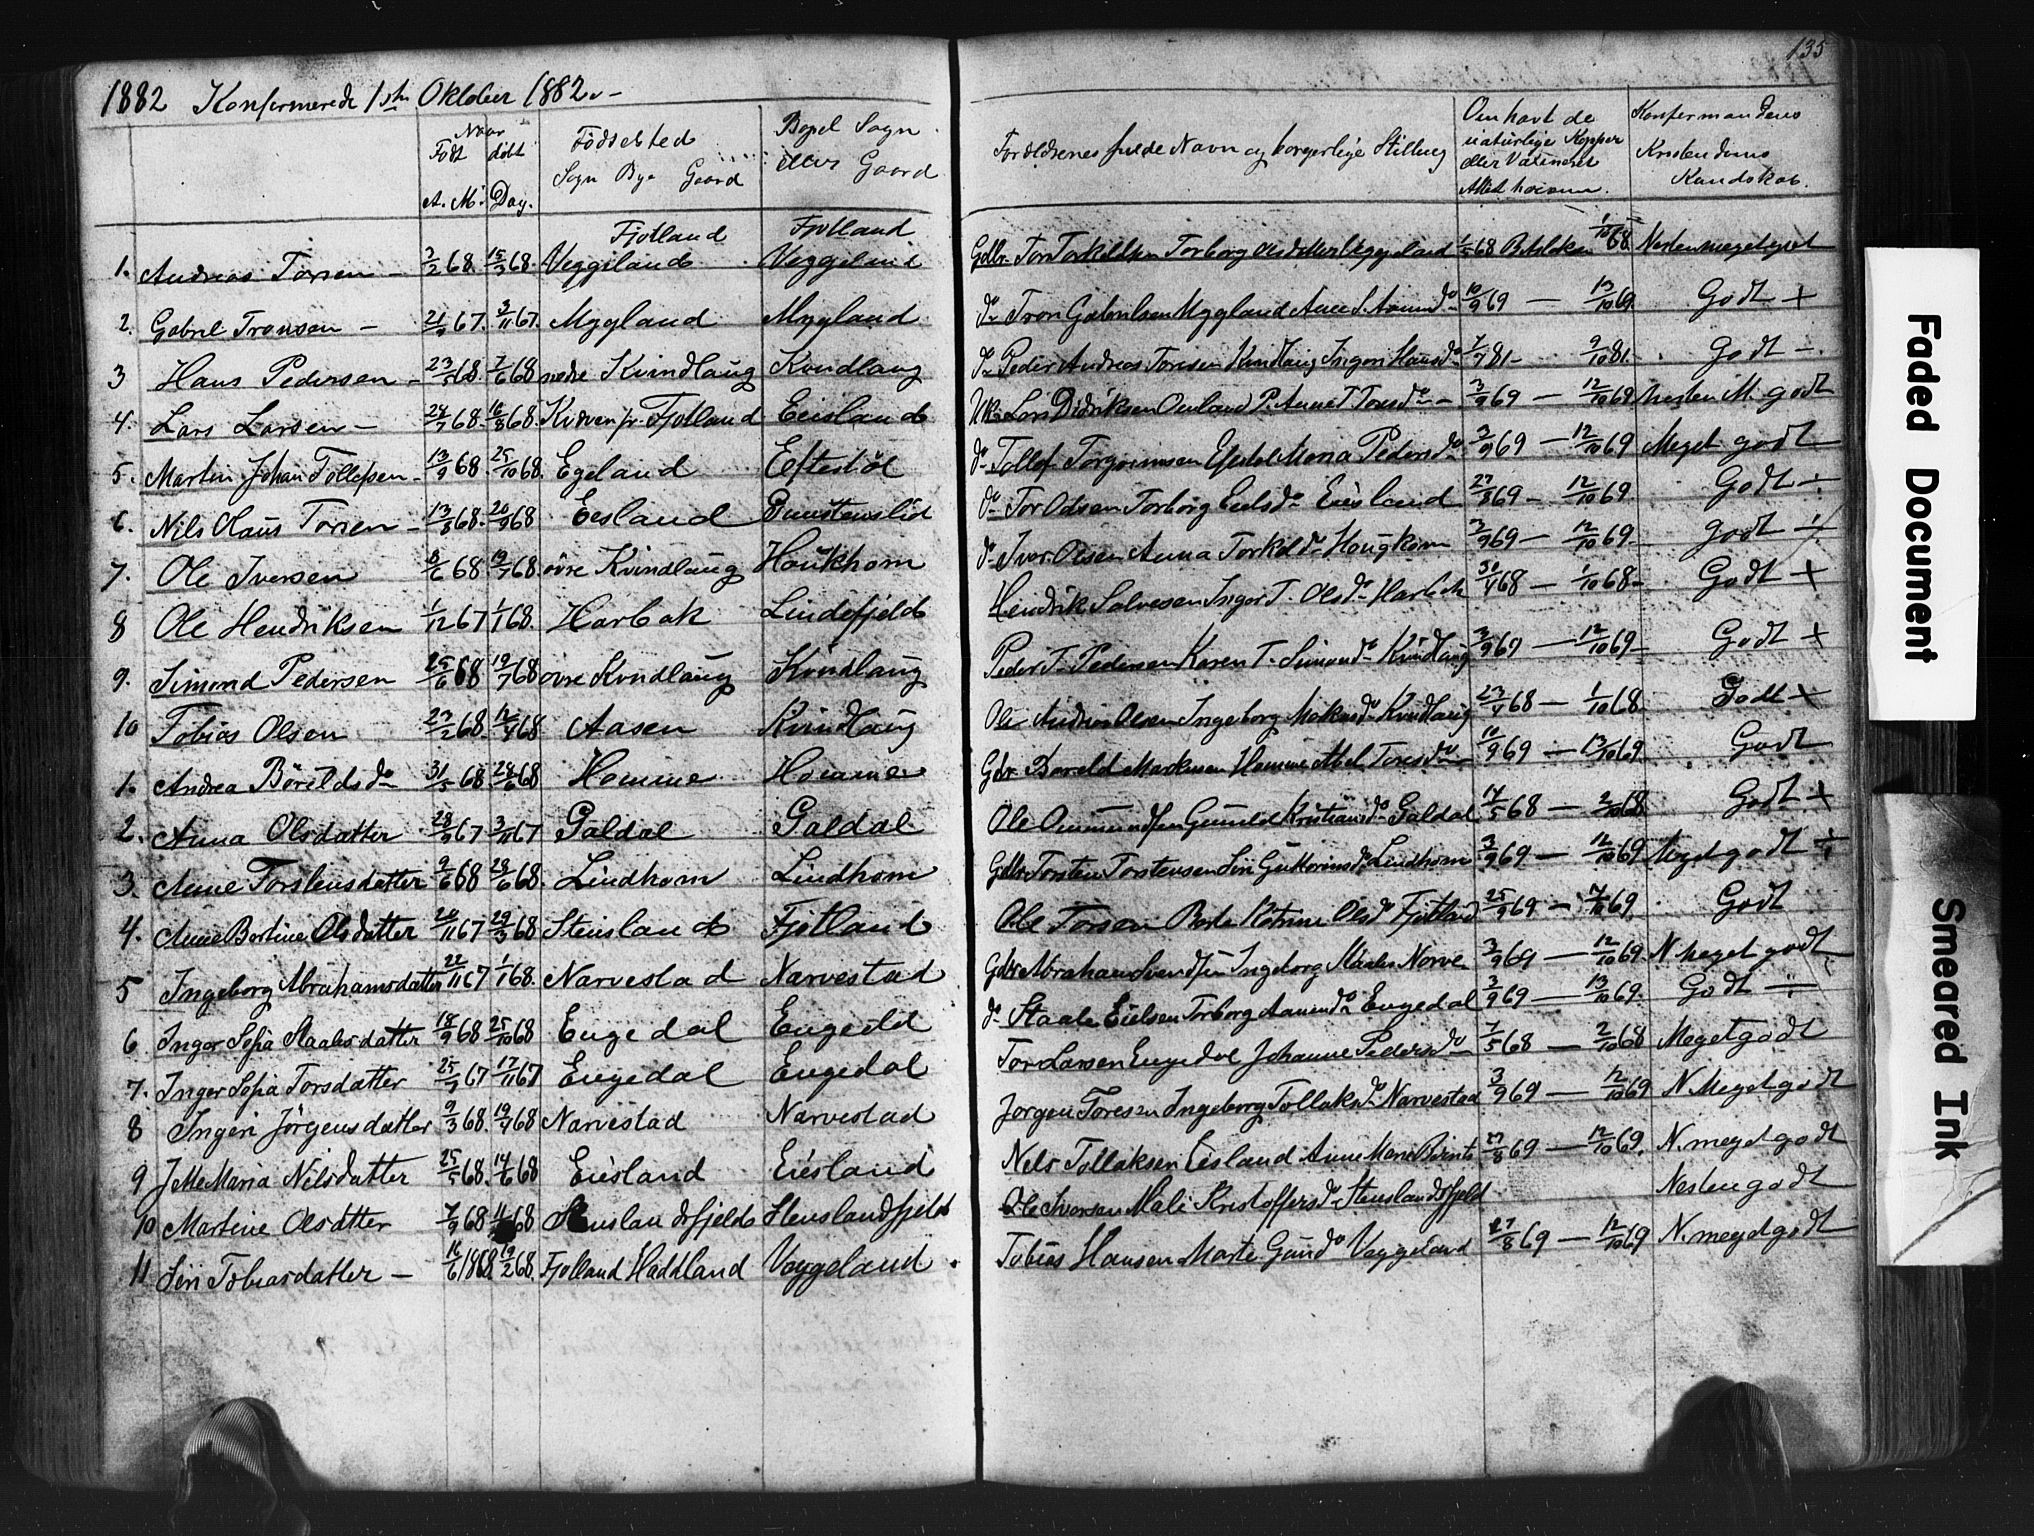 135
1882 Konfirmerede 1ste Oktober 1882.-
Naar
Født døbt
A. M. Dag.
Födested
Sogn Bye Gaard
Bopel Sogn
Gaard
Foreldrenes fulde Navn og borgerlige Stilling
Om havt de
naturlige Kopper
eller Vaxineret
Attest herom.
Konfirmandens
Kristendoms
Kundskab.
Fjotland Fjotland
1. Andreas Torsen - 3/2 68 15/3 68 Veggeland Veggeland Gdbr Tor Torkildsen Torborg 68 68 Nesten meget godt
2. Gabriel Tronsen - 21/9 67. 3/11 67. Mygland Mygland do Tron Gabrilsen Mygland Anne S. do 10/9 69 - 13/10 69 Godt +
3 Hans Pedersen - 23/5 68. 7/6 68 nedre Kvindlaug Kvindlaug do Peder Andreas Toresen Kvindlaug Ingeri Hansdo 7/7 81 - 9/10 81. Godt -
4. Lars Larsen - 24/7 68. 16/8 68. Fjotland Eiesland Lars Didriksen P. Anne T Torsdo - 3/9 69 - 12/10 69 Nesten M. godt
5. Martin Johan Tollefsen - 13/9 68. 25/10 68. Egeland Eftestöl do Tollef Torgrimsen Eftestöl Mona Pedersdo 3/9 69 - 12/10 69 Meget godt
6. Nils Olaus Torsen - 13/8 68. 20/9 68 Eesland do Tor Olsen Torborg Eiesland 27/8 69 - 12/10 69 Godt ÷
7. Ole Iversen 8/6 68 19/7 68. övre Kvindlaug Haukhom do Iver Olsen Anna Torkeldo Haugkom 3/9 69 - 12/10 69. godt ÷
8 Ole Hendriksen 1/12 67 1/1 68. Harbak Lindefjeld Hendrik Salvesen Inger T. Olsdo Harbak 30/4 68 - 1/10 68 - Godt +
9. Simond Pedersen 25/6 68 19/7 68 övre Kvindlaug Kvindlaug Peder T. Pedersen Karen T. Simondo Kvindlaug 3/9 69 - 12/10 69 Godt +
10 Tobias Olsen 23/2 68. 12/4 68 Aasen Kvindlaug Ole Andreas Olsen Ingeborg Kvindlaug 23/4 68 - 1/10 68 Godt +
1. Andrea Böreldsdo 31/5 68 28/6 68 Homme Homme Gdr Boreld Markusen Homme Abel Toresdo 10/9 69 - 13/10 69. Godt
2. Anna Olsdatter 28/9 67 3/11 67 Galdal Galdal Ole Ommundsen Gunild Kristiansdo Galdal 14/5 68 - 2/10 68 Godt +
3. Anne Torstensdatter 9/6 68 28/6 68. Lindhom Lindhom Gdbr Torsten Torstensen Siri Guttormsdo Lindhom 3/9 69 - 12/10 69 Meget godt ÷
4. Anne Bertine Olsdatter 20/11 67 29/3 68 Stensland Fjotland Ole Torsen Berte Katrine Olsdo Fjotland 25/9 69 - 69 Godt
5 Ingeborg Abrahamsdatter 22/11 67 1/1 68. Narvestad Narvestad Gdbr Abraham Svendsen Ingeborg Staales Narve 3/9 69 - 12/10 69. N. meget godt
6 Inger Sofia Staalesdatter 18/9 68 25/10 68 Engedal Engedal do Staale Eielsen Torborg Engedal 3/9 69 - 13/10 69. Godt ÷
7. Inger Sofia Torsdatter 25/7 67 17/11 67 Engedal Engedal Tor Larsen Engedal Johanne Pedersdo 7/5 68 - 2/10 68 Meget godt
8 Ingeri Jörgensdatter 9/3 68. 19/4 68 Narvestad Narvestad Jorgen Toresen Ingeborg Tollaksdo Narvestad 3/9 69 - 12/10 69 N. Meget godt
9 Maria Nilsdatter 25/5 68. 14/6 68 Eiesland Eiesland Nels Tollaksen Eisland Anne Marie 27/8 69 - 12/10 69. N. meget godt
10 Martine Olsdtter 7/9 68 68 Stenslandsfjeld Stenslandsfjeld Ole Iversen Mali Kristoffersdo Stenslandsfjeld Nesten godt
11 Siri Tobiasdatter - 16/6 1868 19/2 68. Fjotland Haddland Veggeland. Tobias Hansen Marte Gundo Veggeland 27/8 69 - 12/10 69 N. meget godt
Faded Document
Smeared Ink